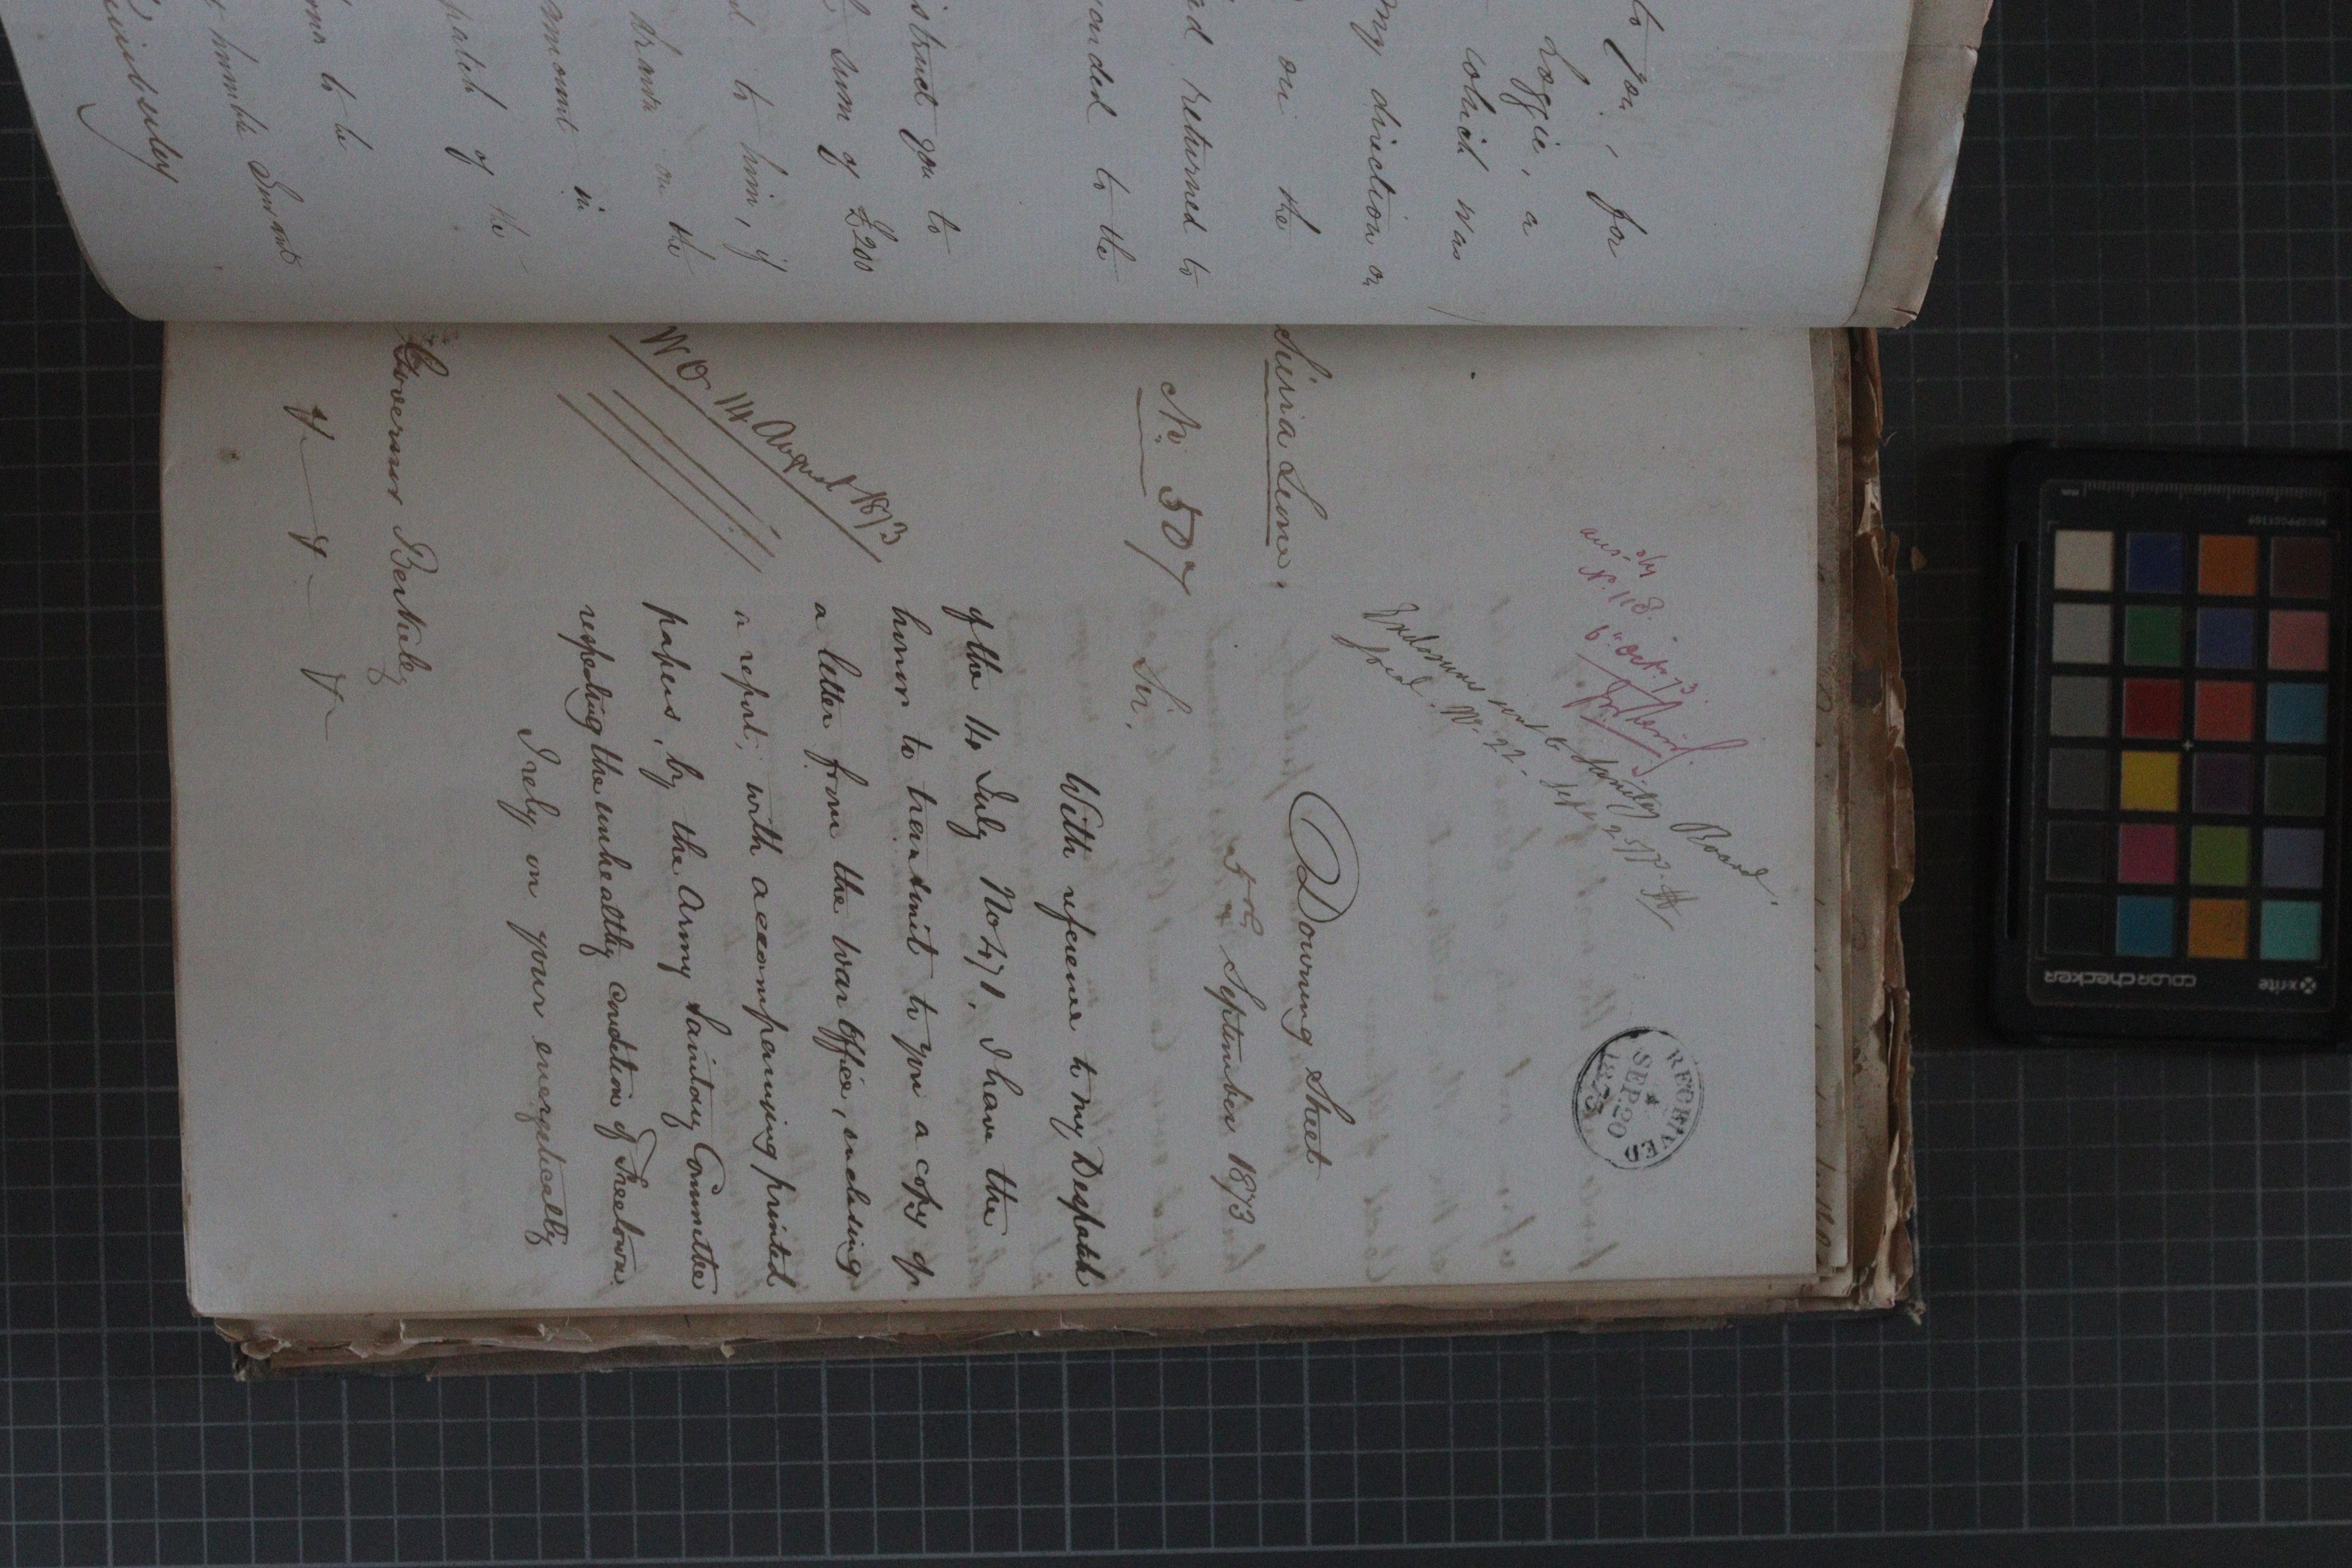 to you, for
Loggie, a
which was
my direction on
on the
returned to
to the
you to
sum of £200
to him, if
drawn on the
amount in
of the
to be
humble Servant
Kimberley
ansd by
No. 118.
6" Octr. 73.
Enclosures sent to Sanitary Board.
RECEIVED
SEP. 20
1873
Sierra Leone.
No. 507
Downing Street
5th September 1873
Sir,
With reference to my Despatch
of the 16 July No 471. I have the
honor to transmit to you a copy of
a letter from the War Office, enclosing
a report, with accompanying printed
papers, by the Army Sanitary Committee
respecting the unhealthy condition of Freetown.
I rely on your energetically
WO 14 August 1873
Governor Berkeley
x-rite
colorchecker